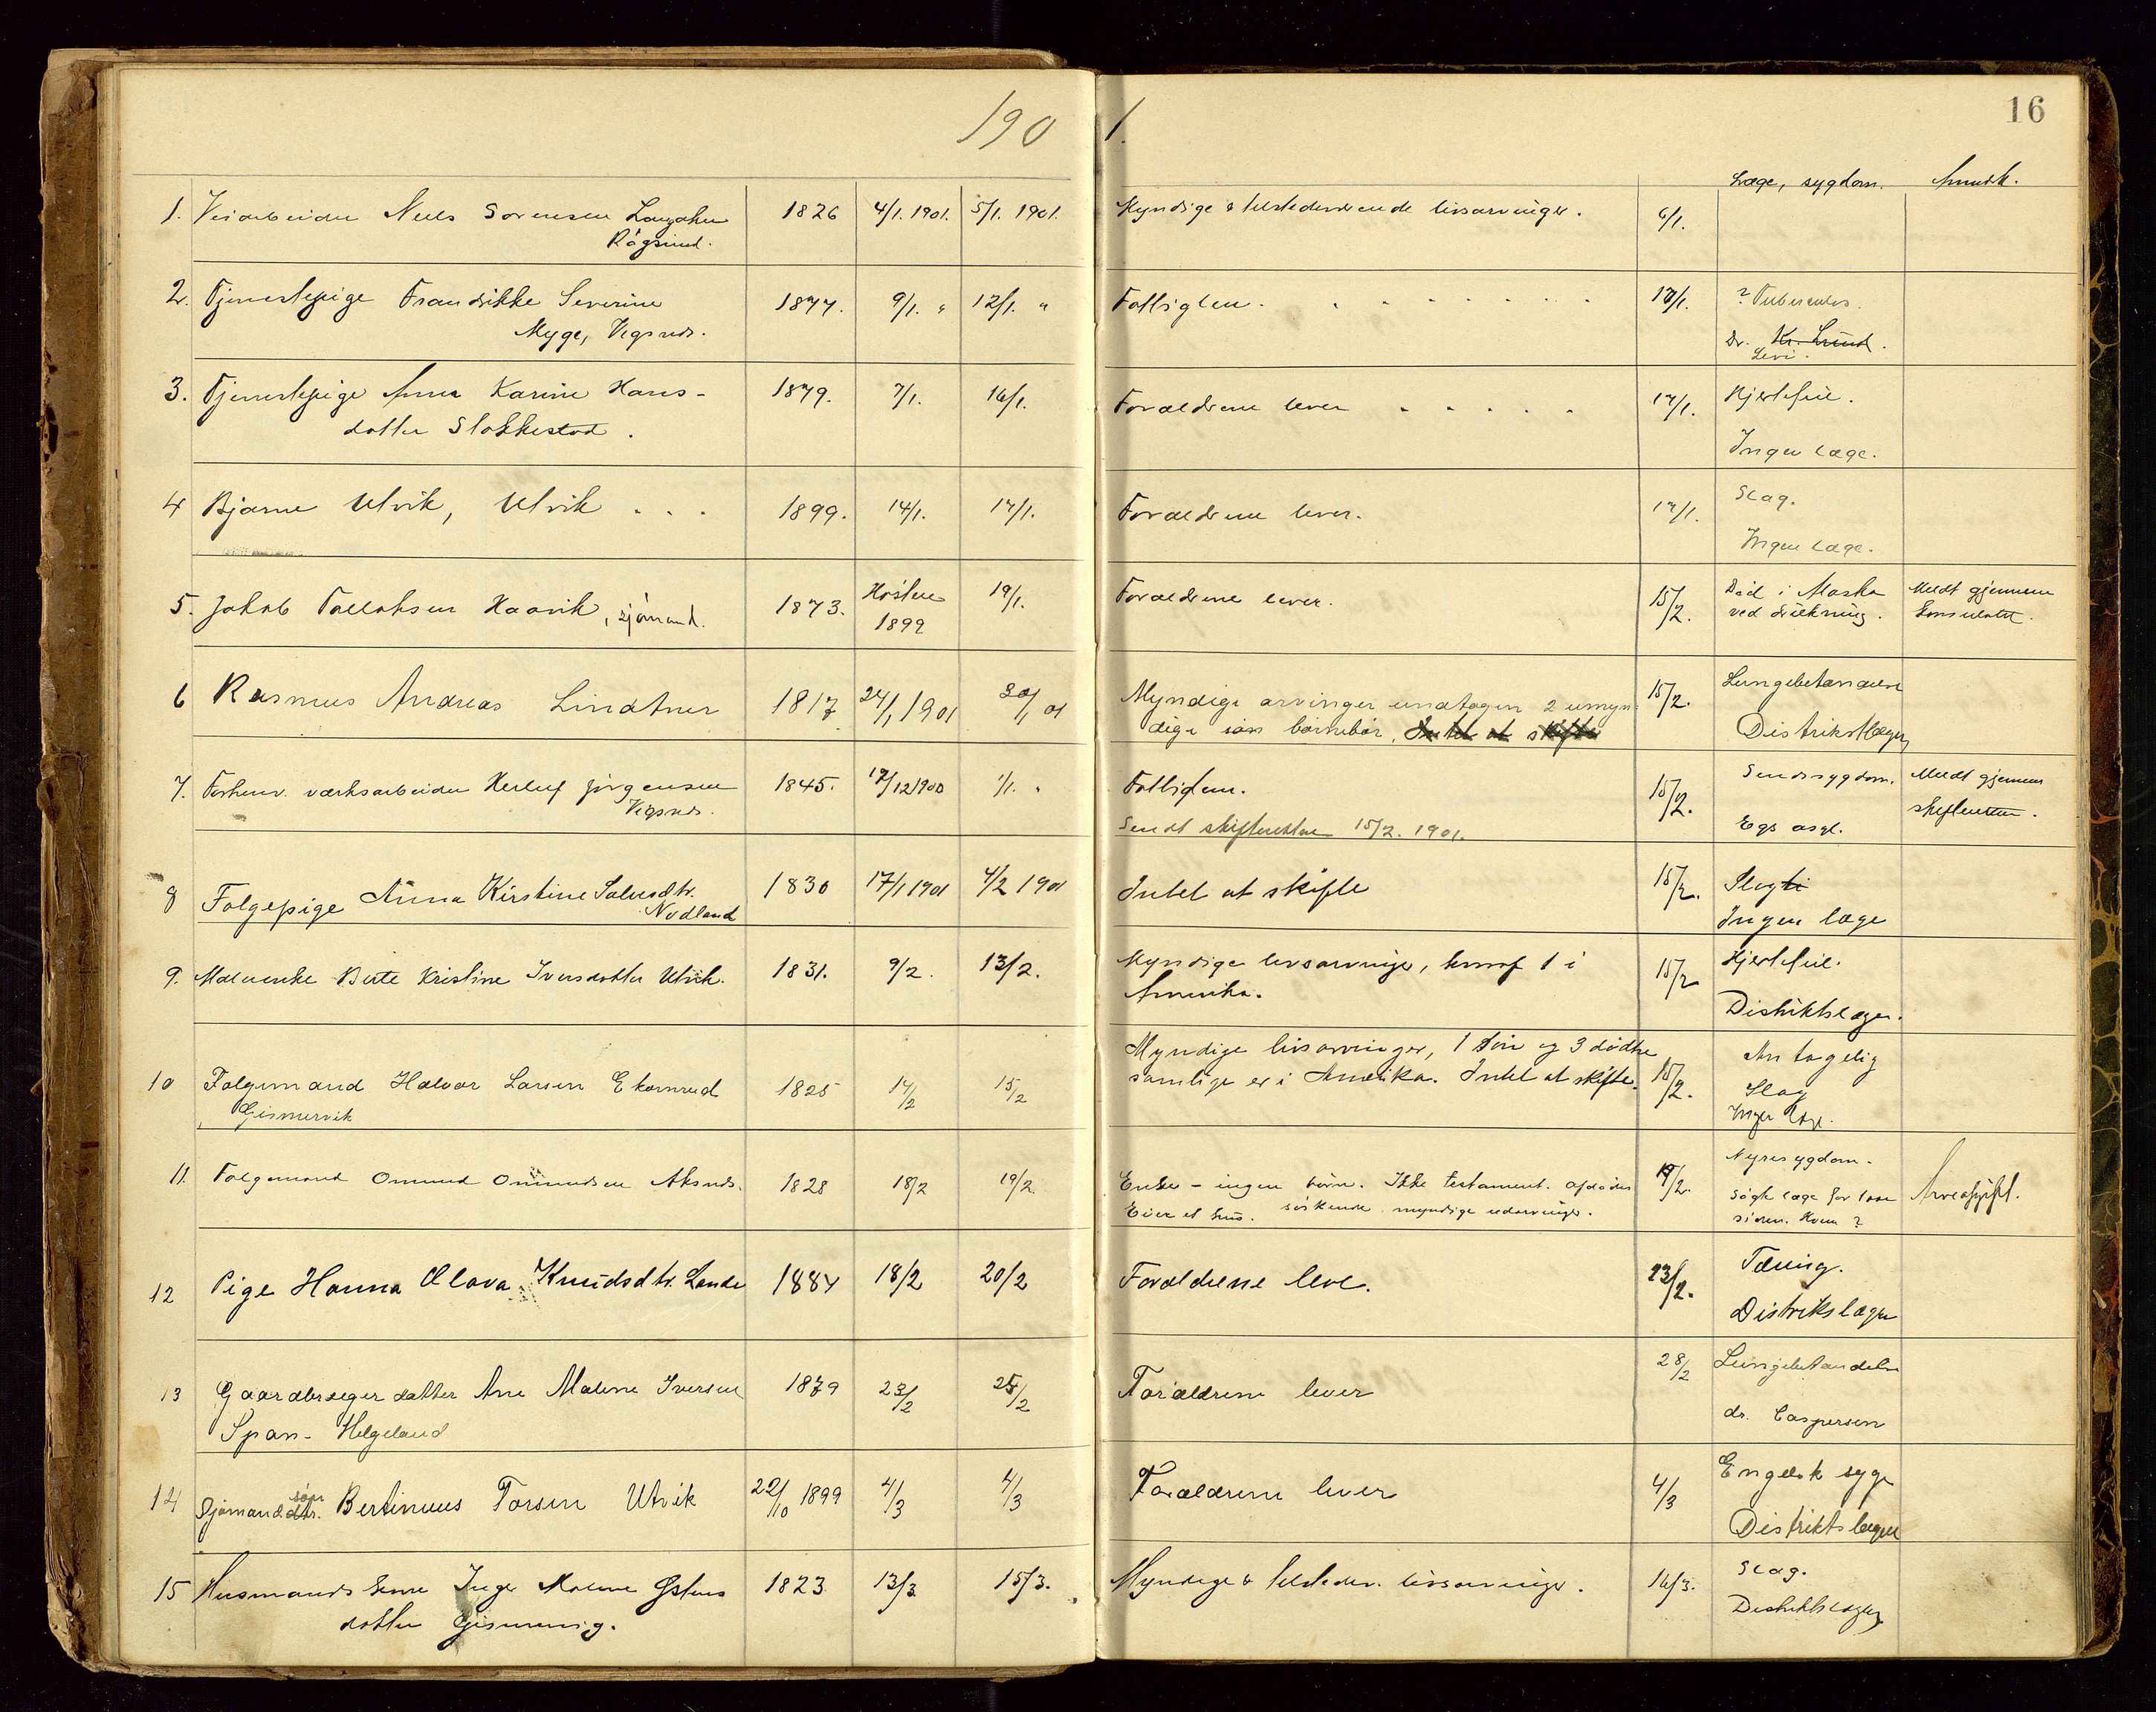 1901.
16
Læge, sygdom. Anmærk.
1. Veiarbeider Niels Sørensen 1826 4/1. 1901. 5/1. 1901. Myndige & tilstedeværende livsarvinger. 6/1.
Røgsund.
2. Tjenestepige Frandsikke Severine 1877. 9/1. " 12/1. " Fattiglem. 13/1. ? Tuberculos.
Myge, Vigsnæs. Dr. Kr. Lund.
Levi.
3. Tjenestepige Anna Karine Hans- 1879. 7/1. 16/1. Forældrene lever 17/1. Hjertefeil.
datter Stokkestad. Ingen læge.
4 Bjarne Utvik, Utvik . . . 1899. 14/1. 17/1. Forældrene lever. 17/1. Slag.
Ingen læge.
5. Jakob Tollaksen Haavik, sjømand. 1873. Høsten 19/1. Forældrene lever. 15/2. Død i Alaska Meldt gjennem
1899 ved drukning. konsulatet.
6 Rasmus Andreas Lindtner 1817 24/1 1901 30/1 01 Myndige arvinger undtagen 2 umyn- 15/2. Lungebetændelse
dige barnebør. Intet at skifte Distriktslægen
7. Forhenv. værksarbeider Herluf Jørgensen 1845. 17/12 1900 1/1. " Fattiglem. 15/2. Sindssygdom. Meldt gjennem
Vigsnæs. Sendt skifteretten 15/2. 1901. Egs asyl. skifteretten.
8 Folgepige Anna Kirstine Salvesdtr. 1830 17/1 1901 4/2 1901 Intet at skifte 15/2. Slag
Nodland Ingen læge
9. Madenke Berte Kristine Iversdatter Utvik. 1831. 9/2. 13/2. Myndige livsarvinger, hvoraf 1 i 15/2 Hjertefeil.
Amerika. Distriktslægen.
10 Folgemand Halvor Larsen Ekornrud 1825 14/2 15/2 Myndige livsarvinger, 1 søn og 3 døttre 15/2. Antagelig
Gismervik samtlige er i Amerika. Intet at skifte. Slag
Ingen læge.
11. Folgemand Omund Omundsen Aksnes. 1828 18/2 19/2. Enke - ingen børn. Ikke testament. Afdødes 19/2. Nyresygdom.
Eier et hus. søskende myndige udarvinger. Søgte læge for længe Arveafgift.
siden. Hvem?
12 Pige Hanna Olava Knudsdtr. Lande 1884 18/2 20/2 Forældrene leve. 23/2. Tæring.
Distrikslægen
13 Gaardbrugerdatter Ane Malene Iversen 1879 23/2 25/2 Forældrene lever 28/2 Lungebetændelse
Span- Helgeland dr. Caspersen
14 Sjømandsdtr. søn Bertinius Torsen Utvik 22/10 1899 4/3 4/3 Forældrene lever 4/3 Engelsk syge
Distriktslægen
15 Husmands kone Inger Malene Østens 1823 13/3. 15/3. Myndige & tilstedev. livsarvinger. 16/3. Slag.
datter Gismervig. Distriktslægen